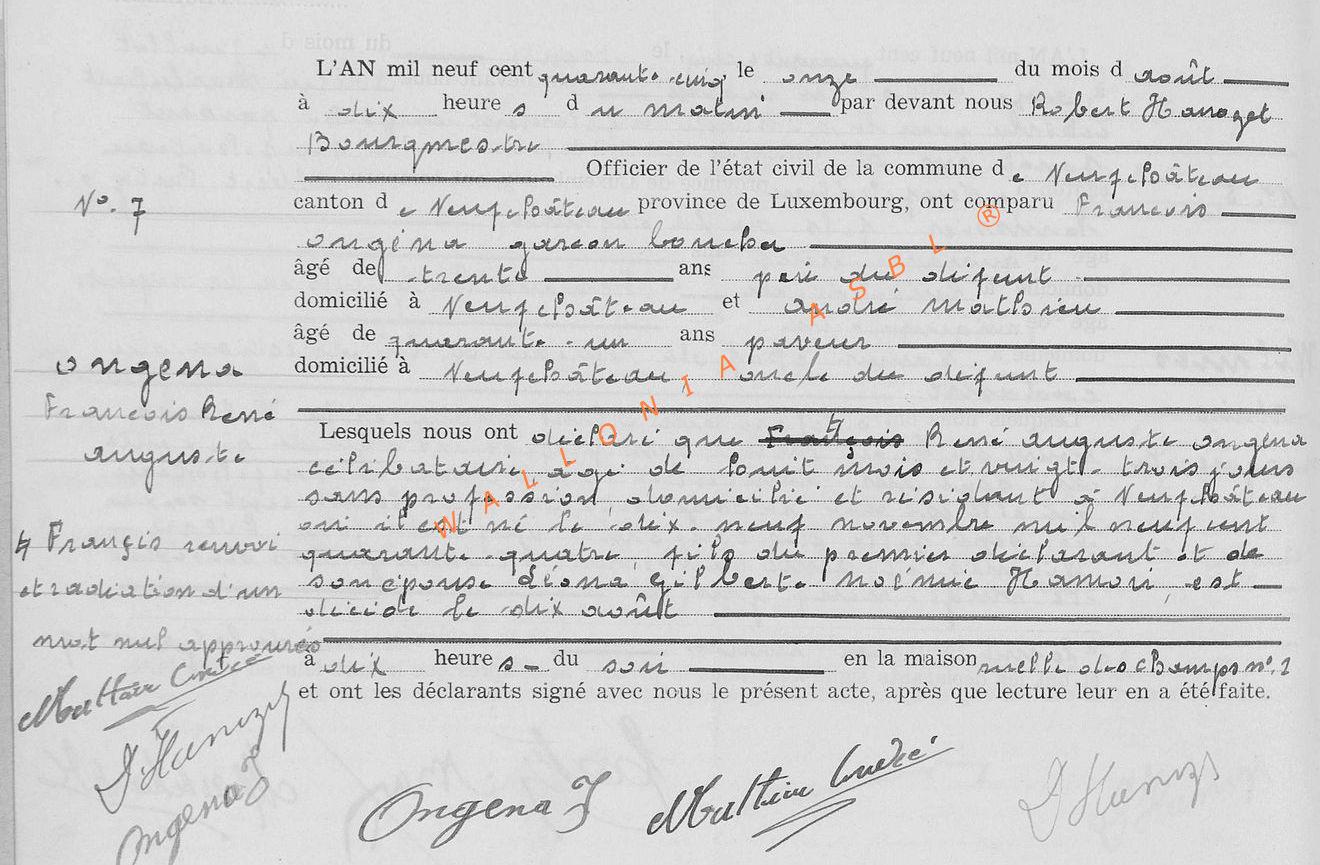 L'AN mil neuf cent quarante-cinq, le onze du mois d août
à dix heure s d u matin par devant nous Robert
Bourgmestre
Officier de l'état civil de la commune d e Neufchâteau
N°. 7
canton d e Neufchâteau province de Luxembourg, ont comparu François
Ongéna garçon boucher
âgé de trente ans père du défunt
domicilié à Neufchâteau et André Mathieu
âgé de quarante-un ans paveur
domicilié à Neufchâteau oncle du défunt
Ongena
François René
Auguste
Lesquels nous ont déclaré que François René Auguste Ongena
célibataire, âgé de huit mois et vingt-trois jours
sans profession, domicilié et résidant à Neufchâteau
où il est né le dix-neuf novembre mil neuf cent
quarante-quatre, fils du premier déclarant et de
son épouse Léona Gilberte Noémie Hamori, est
décédé le dix août
Françis renvoi
et radiation d'un
mot nul approuvés
à dix heure s du soir en la maison ruelle des Champs n°. 1
et ont les déclarants signé avec nous le présent acte, après que lecture leur en a été faite.
Mathieu André
Ongena F
Ongena F
Mathieu André
WALLONIA ASBL ®